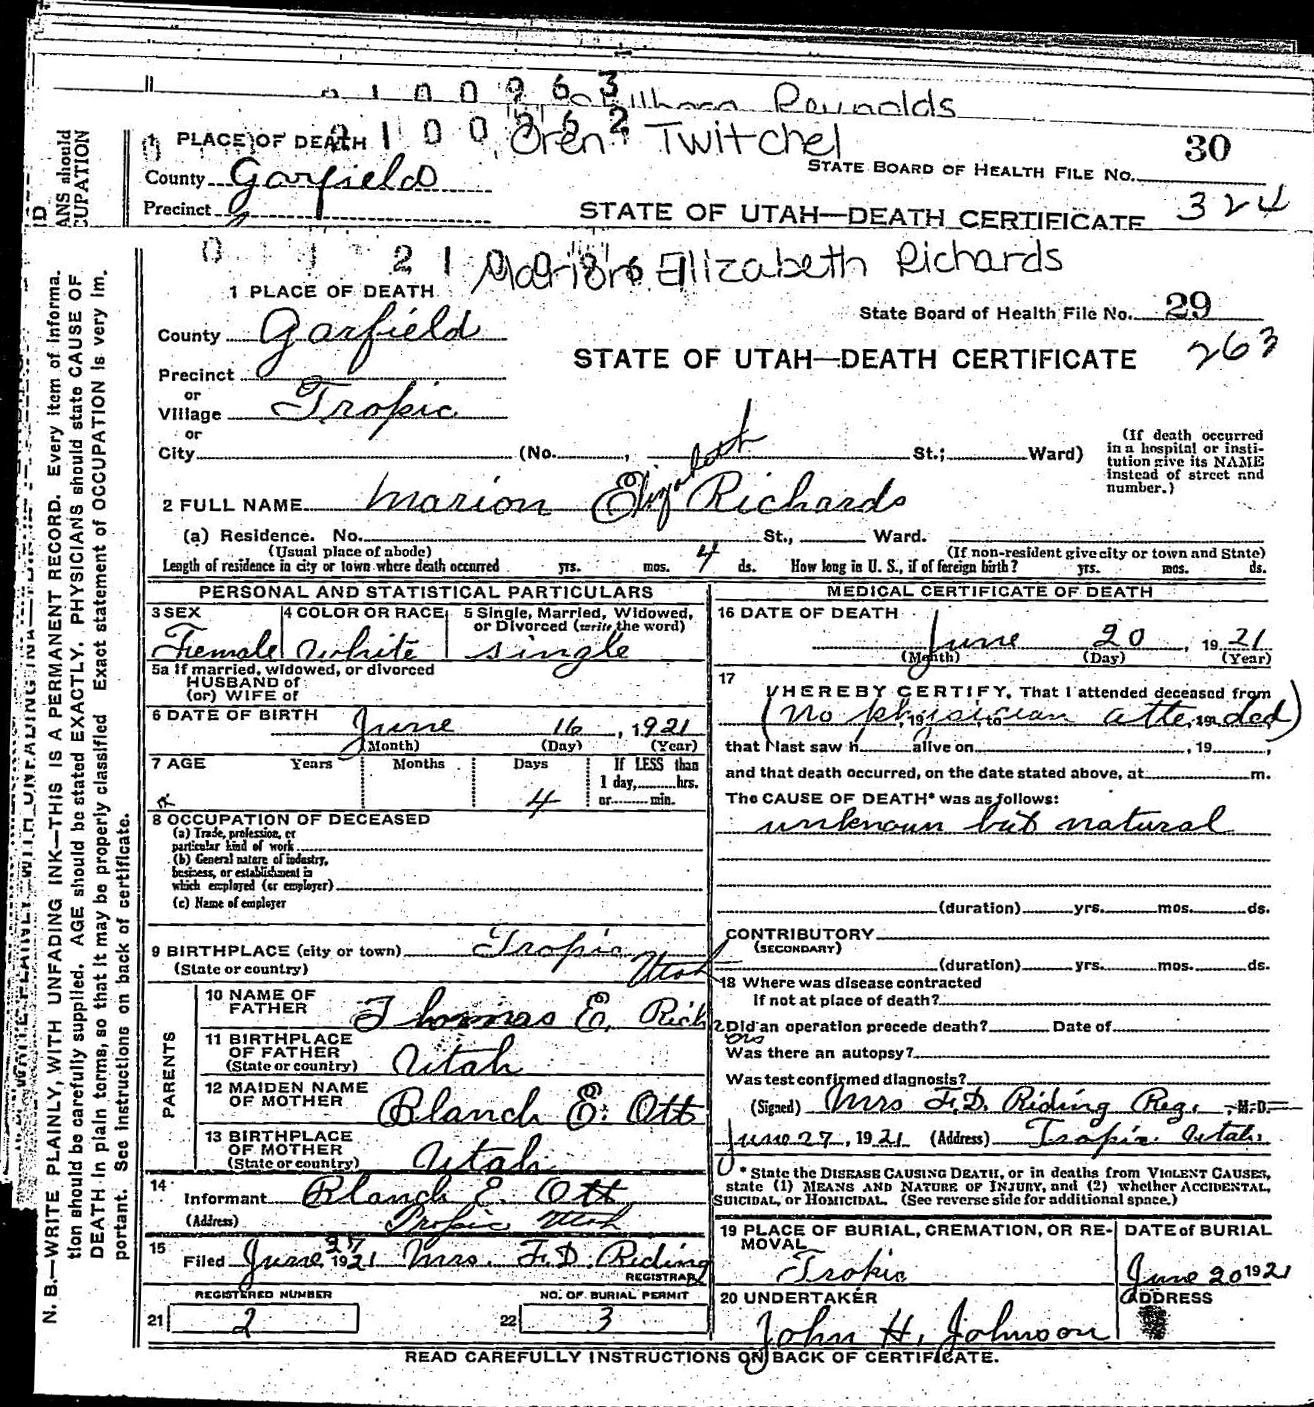 2 1 0 0 9 6 3
Reynolds
1 PLACE OF DEATH 2 1 0 0 9 6 2 Oren Twitchel 30
County Garfield STATE BOARD OF HEALTH FILE No.
Precinct STATE OF UTAH—DEATH CERTIFICATE 324
ANS should
CUPATION
0 2 1 Marion Elizabeth Richards
1 PLACE OF DEATH
State Board of Health File No. 29
County Garfield
STATE OF UTAH—DEATH CERTIFICATE 263
Precinct
or
Village Tropic
or
City (No. , St.; Ward)
(If death occurred in a hospital or institution give its NAME instead of street and number.)
2 FULL NAME Marion Elizabeth Richards
(a) Residence. No. St., Ward.
(Usual place of abode) (If non-resident give city or town and State)
Length of residence in city or town where death occurred yrs. mos. 4 ds. How long in U. S., if of foreign birth? yrs. mos. ds.
PERSONAL AND STATISTICAL PARTICULARS
3 SEX 4 COLOR OR RACE 5 Single, Married, Widowed,
or Divorced (write the word)
Female White single
5a If married, widowed, or divorced
HUSBAND of
(or) WIFE of
6 DATE OF BIRTH June 16, 1921
(Month) (Day) (Year)
7 AGE Years Months Days If LESS than
1 day, hrs.
4 or min.
8 OCCUPATION OF DECEASED
(a) Trade, profession, or
particular kind of work
(b) General nature of industry,
business, or establishment in
which employed (or employer)
(c) Name of employer
9 BIRTHPLACE (city or town) Tropic
(State or country) Utah
PARENTS
10 NAME OF
FATHER Thomas E. Rich
11 BIRTHPLACE
OF FATHER
(State or country) Utah
12 MAIDEN NAME
OF MOTHER Blanch E. Ott
13 BIRTHPLACE
OF MOTHER
(State or country) Utah
14
Informant Blanch E. Ott
(Address) Tropic Utah
15
Filed June 27 1921 Mrs. F. D. Riding
REGISTRAR
REGISTERED NUMBER NO. OF BURIAL PERMIT
21 2 22 3
MEDICAL CERTIFICATE OF DEATH
16 DATE OF DEATH
June 20, 1921
(Month) (Day) (Year)
17
I HEREBY CERTIFY, That I attended deceased from
(No physician attended)
, 19 , to , 19
that I last saw h alive on , 19 ,
and that death occurred, on the date stated above, at m.
The CAUSE OF DEATH* was as follows:
unknown but natural
(duration) yrs. mos. ds.
CONTRIBUTORY
(SECONDARY)
(duration) yrs. mos. ds.
18 Where was disease contracted
if not at place of death?
Did an operation precede death? Date of
Was there an autopsy?
Was test confirmed diagnosis?
(Signed) Mrs F. D. Riding Reg. M. D.
June 27, 1921 (Address) Tropic Utah
* State the DISEASE CAUSING DEATH, or in deaths from VIOLENT CAUSES,
state (1) MEANS AND NATURE OF INJURY, and (2) whether ACCIDENTAL,
SUICIDAL, or HOMICIDAL. (See reverse side for additional space.)
19 PLACE OF BURIAL, CREMATION, OR RE-
MOVAL
Tropic
DATE of BURIAL
June 20 1921
20 UNDERTAKER
John H. Johnson
ADDRESS
READ CAREFULLY INSTRUCTIONS ON BACK OF CERTIFICATE.
N. B.—WRITE PLAINLY, WITH UNFADING INK—THIS IS A PERMANENT RECORD. Every item of informa-
tion should be carefully supplied. AGE should be stated EXACTLY. PHYSICIANS should state CAUSE OF
DEATH in plain terms, so that it may be properly classified. Exact statement of OCCUPATION is very im-
portant. See Instructions on back of certificate.